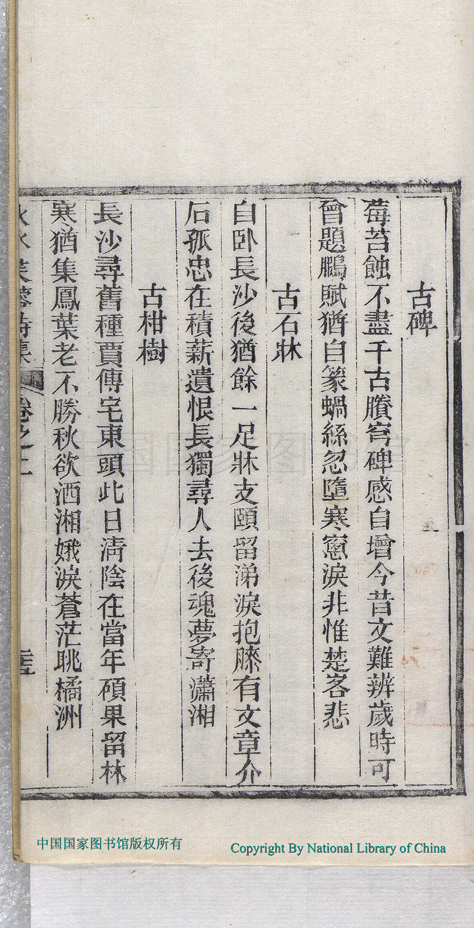 古碑
莓苔蝕不盡千古賸穹碑感自增今昔文難辨歲時可
曾題鵩賦猶自篆蝸絲忽墮寒窻淚非惟楚客悲
古石牀
自卧長沙後猶餘一足牀支頤留涕淚抱膝有文章介
石孤忠在積薪遺恨長獨尋人去後魂夢寄瀟湘
古柑樹
長沙尋舊種賈傅宅東頭此日清陰在當年碩果留林
寒猶集鳳葉老不勝秋欲洒湘娥淚蒼茫眺橘洲
水芙蓉詩集 卷之二
中国国家图书馆版权所有
Copyright By National Library of China